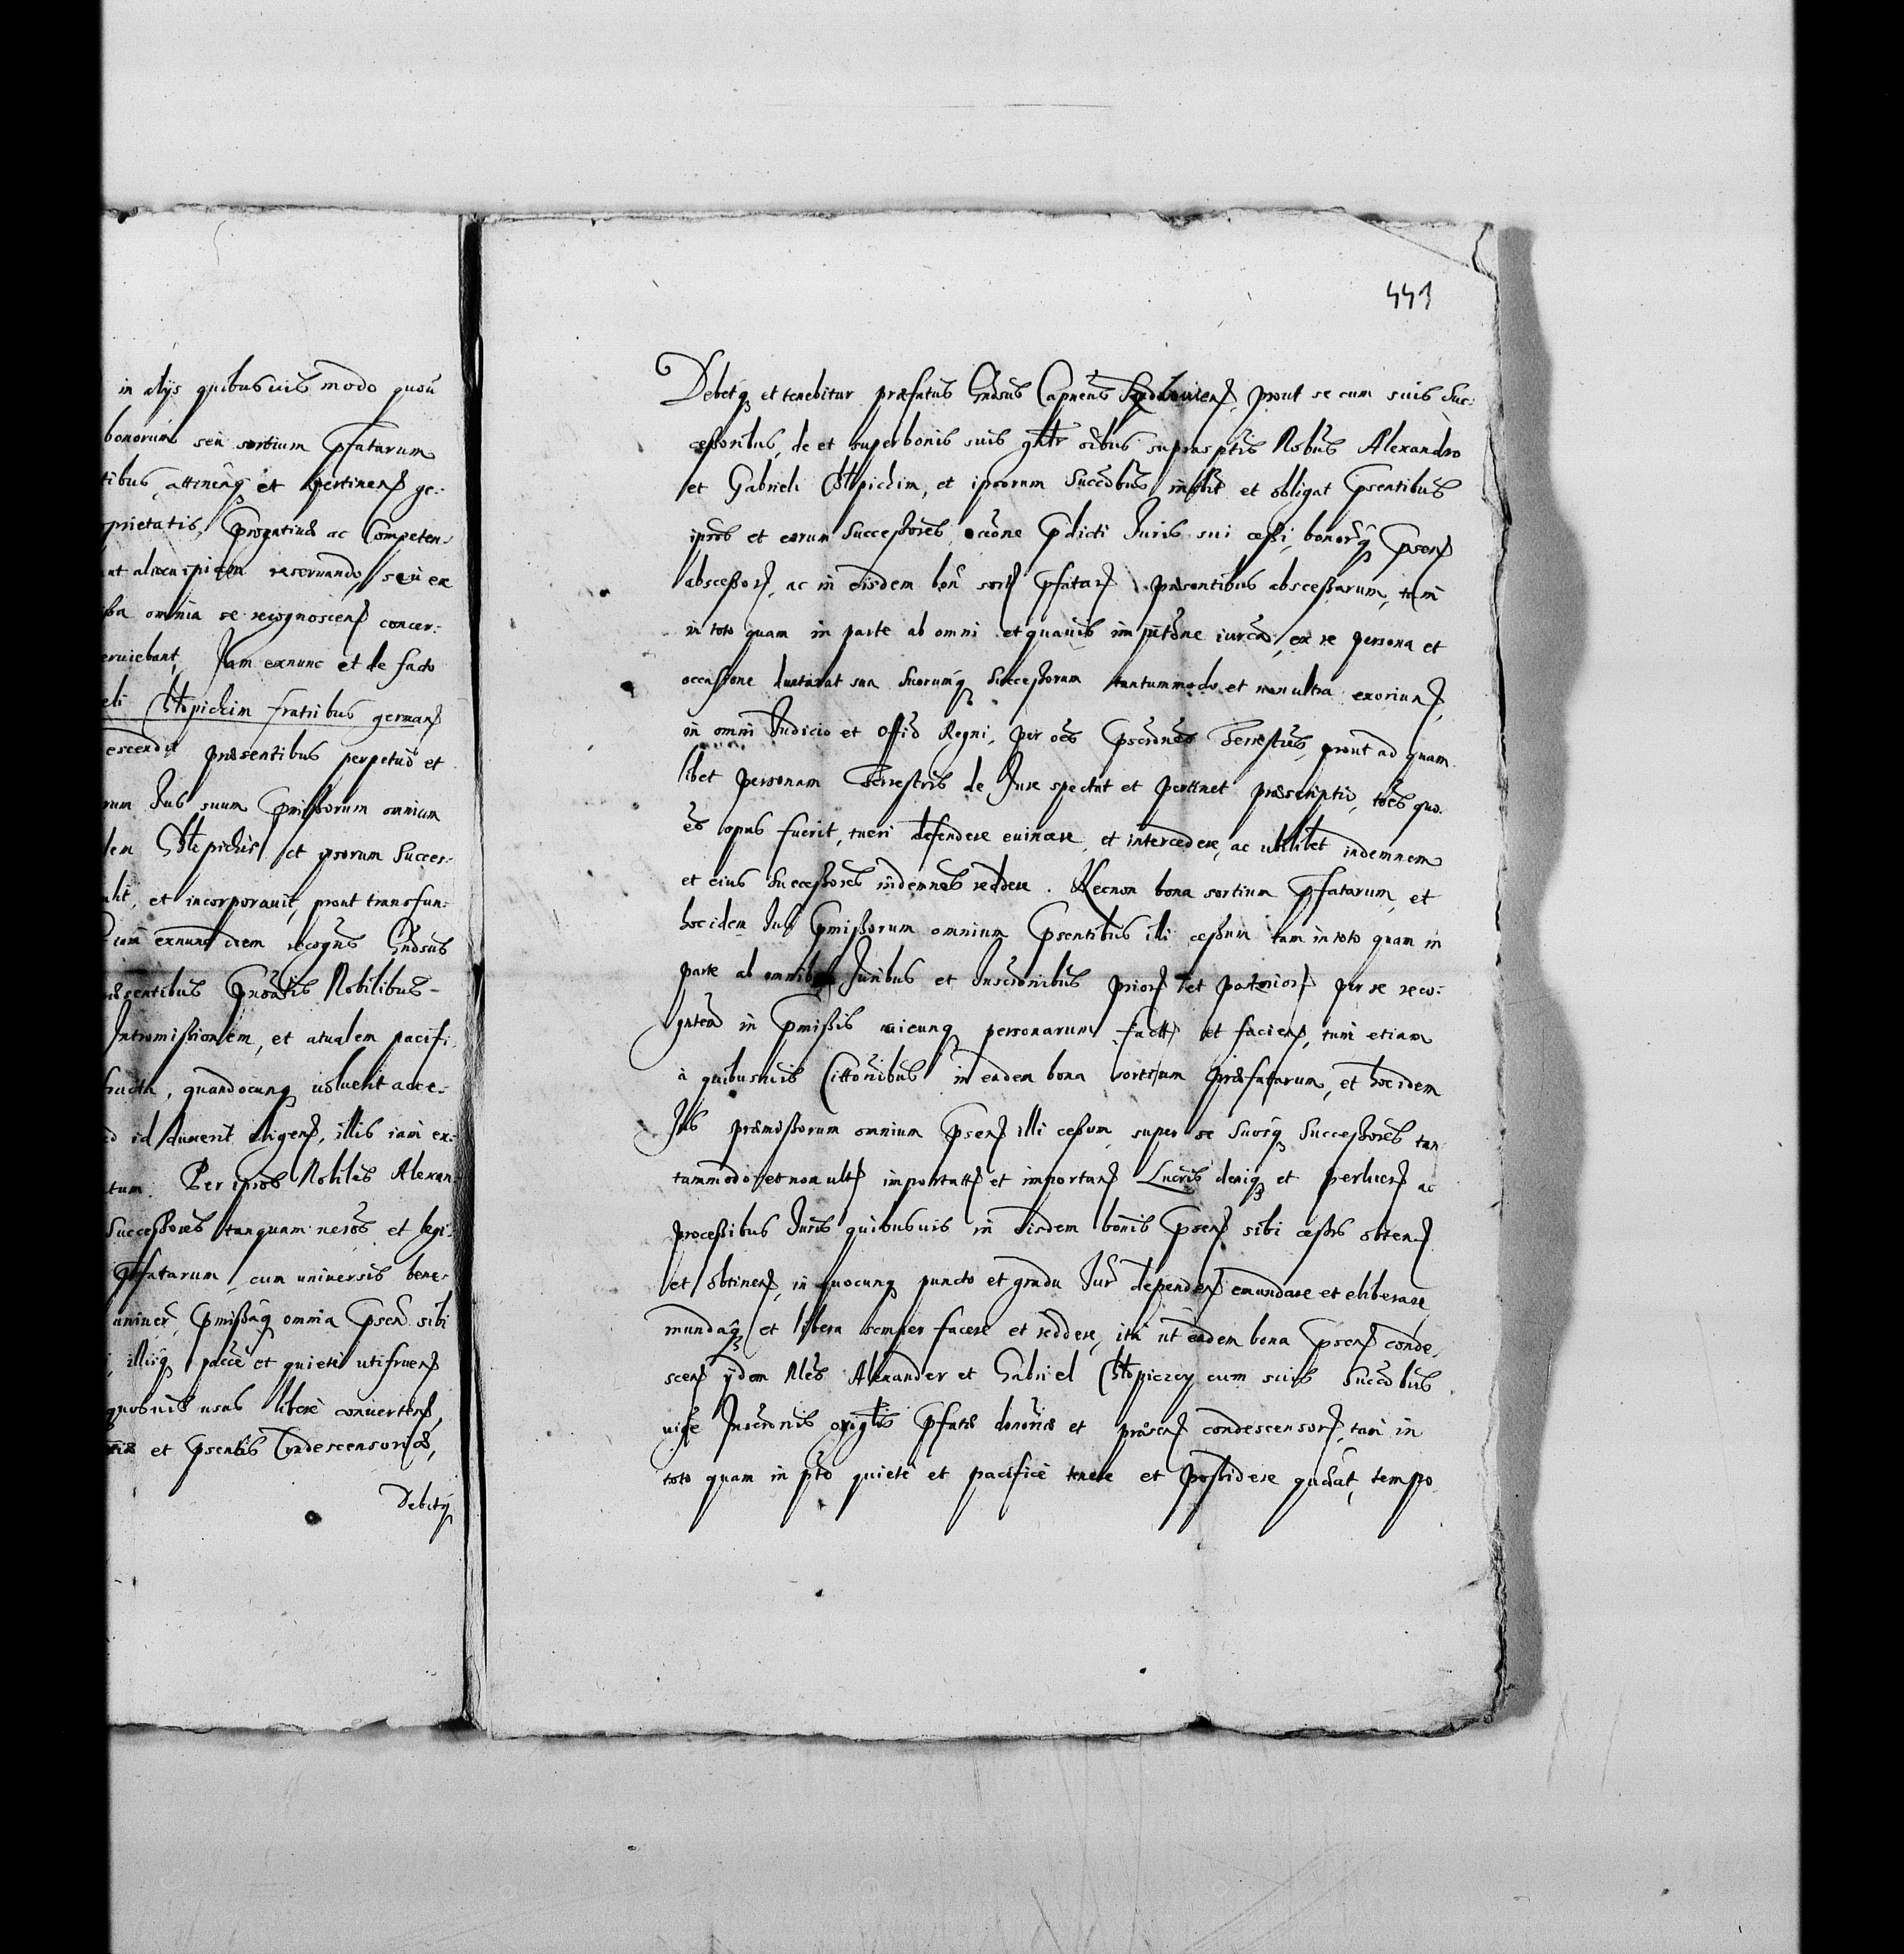 in alijs quibusuis modo quou
bonorum seu sortium Pfatarum
tibus attinenq et pertinens ge:
oprietatis, Prognatiuis ac Competen:
nt alicui reseruando, seu ex
iba omnia se recognoscens concer:
eruiebant, Iam exnunc et de facto
eli Chlopickim fratribus germans
escendit praesentibus perpetuo et
rum Jus suum Pmissorum omnium
dem Chlopickis et ipsorum Succes:
ulit, et incorporauit, prout transfun:
iam exnunc idem recogns Gndsus
aesentibus Pnoatis Nobilibus
Intromissionem, et atualem pacifi:
fructa, quandocunq uoluerit acce:
d id duxerit eligens, illis iam ex:
tum. Per ipsos Nobiles Alexan:
Successores tanquam ueros et legi:
Pfatarum, cum uniuersis bene:
uniuer, Pmissaq omnia Psen sibi
illisq pacce et quiete utifruens
quosuis usus libere conuertens,
et Psentis Condescensoriae,
Debetq
441
Debetq et tenebitur praefatus Gndsus Capneus prout se cum suis Suc:
cessoribus, de et super bonis suis gnlr oibus suprasptis Nobus Alexandro
et Gabrieli Chlopickim, et ipsorum Succdbus inscbit et obligat Psentibus
ipsos et eorum Successores, ocaone Pdicti Iuris sui cessi, bonorq Psens
abscessors, ac in eisdem bon sorts Pfatars praesentibus abscessarum, tam
in toto quam in parte ab omni et quauis impetone iurca, ex re persona et
occasione duntaxat sua Suorumq Successorum tantummodo et non ultra exoriens,
in omni Iudicio et Offio Regni, per oes Pscriones Terrestres, prout ad quam
libet personam Terrestris de Jure spectat et pertinet praescriptio, toes quo
es opus fuerit, tueri defendere euincere, et intercedere, ac utilibet indemnem
et eius Successores indemnes reddere. Necnon bona sortium Pfatarum, et
hocidem Jus Pmissorum omnium Psentibus illi cessum tam in toto quam in
parte ab omnibus Juribus et Inscrionibus priors et posteriors per se reco:
gntem in Pmissis cuicunq personarum facts et faciens, tum etiam
a quibusuis Cittonibus in eadem bona sortium Praefatarum, et hocidem
Jus praemissorum omnium Psens illi cessum, super se Suosq Successores tan
tummodo et non ults importatts et importans Lucris deniq et perlucrs ac
processibus Iuris quibusuis in eisdem bonis Psens sibi cessis obtens
et obtinens, in quocunq puncto et gradu Jur dependens emundare et eliberare
mundaq et libera semper facere et reddere, ita ut eadem bona Psens conde:
scens ijdem Nles Alexander et Gabriel Chlopiczcy cum suis Succdbus
uige Inscronis origlis Pfatae donoriae et praesens condescensors, tam in
toto quam in pte quiete et pacifice tenere et possidere queat, tempo